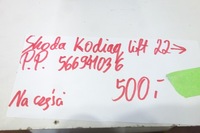 Skoda Kodiaq lift 22→
P.P. 566941036
Na części
500,-